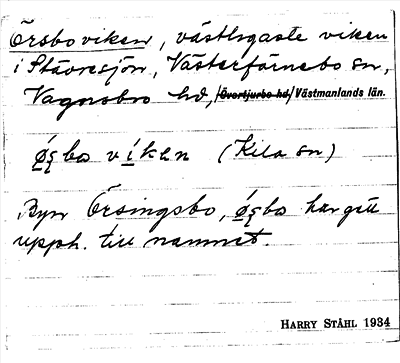 Örsboviken, västligaste viken
i Stavresjön, Västerfärnebo sn,
Vagnsbro hd, /Övertjurbo hd/ Västmanlands län.
ǿʂbo víken (Kila sn)
Byn Örsingsbo, ǿʂbo har gett
upph. till namnet.
HARRY STÅHL 1934